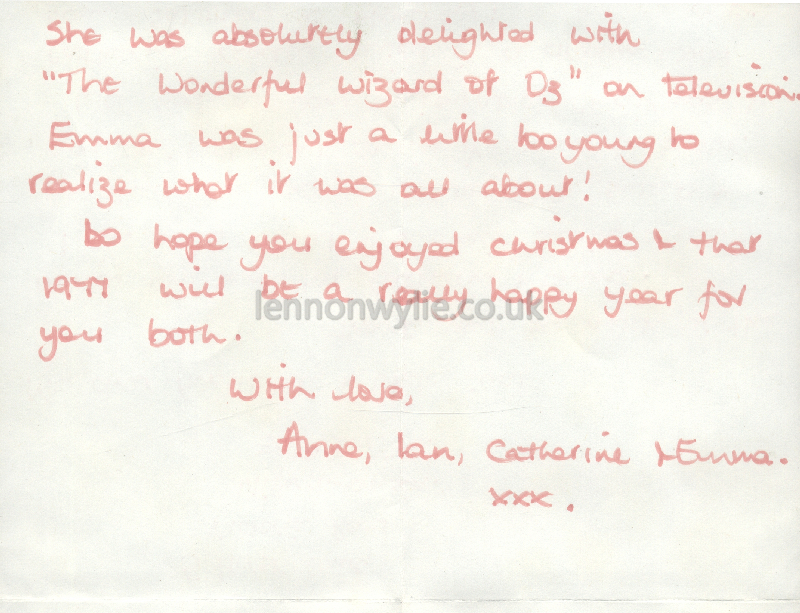 She was absolutely delighted with
"The Wonderful Wizard of Oz" on television.
Emma was just a little too young to
realize what it was all about!
Do hope you enjoyed Christmas & that
1977 will be a really happy year for
lennonwylie.co.uk
you both.
With love,
Anne, Ian, Catherine & Emma.
xxx.